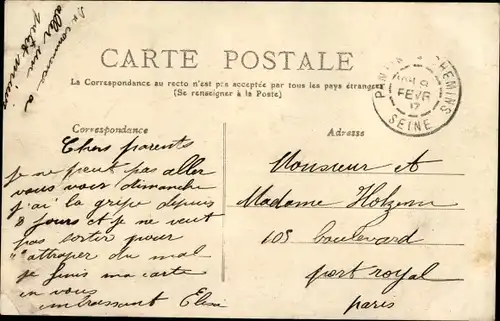 Je commence a
aller un
petit mieux
CARTE POSTALE
La Correspondance au recto n'est pas acceptée par tous les pays étrangers
(Se renseigner à la Poste)
PANTIN CHEMINS
FEVR
SEINE
Correspondance
Adresse
Chers parents
je ne peut pas aller
vous voir dimanche
j'ai la gripe depuis
8 jours et je ne veut
pas sortir pour
attraper du mal
je finis ma carte
en vous
embrassant
Monsieur et
Madame
105 boulevard
port royal
paris